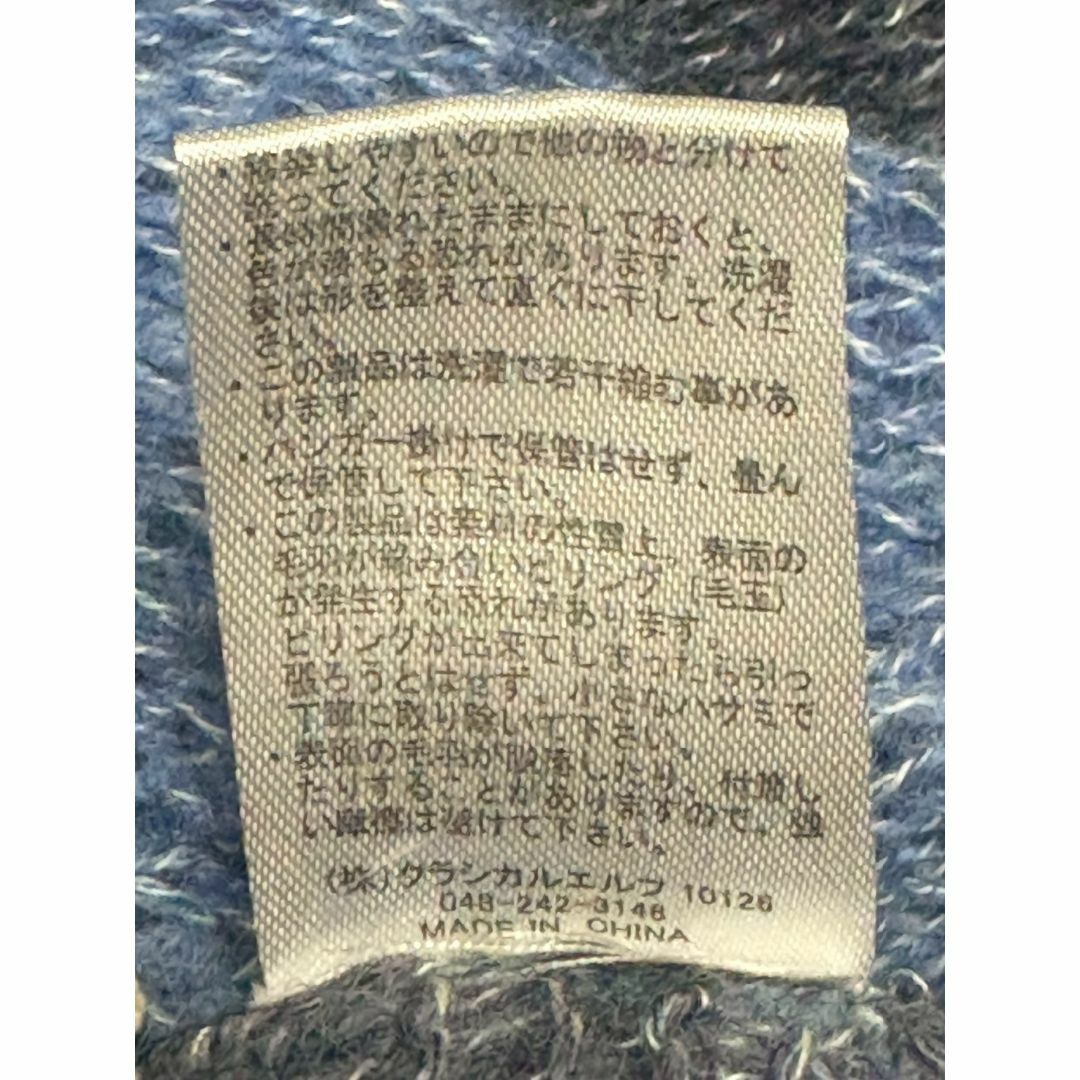 ・移染しやすいので他の物と分けて
洗ってください。
・長時間濡れたままにしておくと、
色が落ちる恐れがあります。洗濯
後は形を整えて直ぐに干してくだ
さい。
・この製品は洗濯で若干縮む事があ
ります。
・ハンガー掛けで保管はせず、畳ん
で保管して下さい。
・この製品は素材の性質上、表面の
毛羽が絡み合いピリング（毛玉）
が発生する恐れがあります。
ピリングが出来てしまったら引っ
張ろうとはせず、小さなハサミで
丁寧に取り除いて下さい。
・表面の毛羽が脱落したり、付着し
たりすることがありますので、強
い摩擦は避けて下さい。
(株)クラシカルエルフ 10126
048-242-3148
MADE IN CHINA